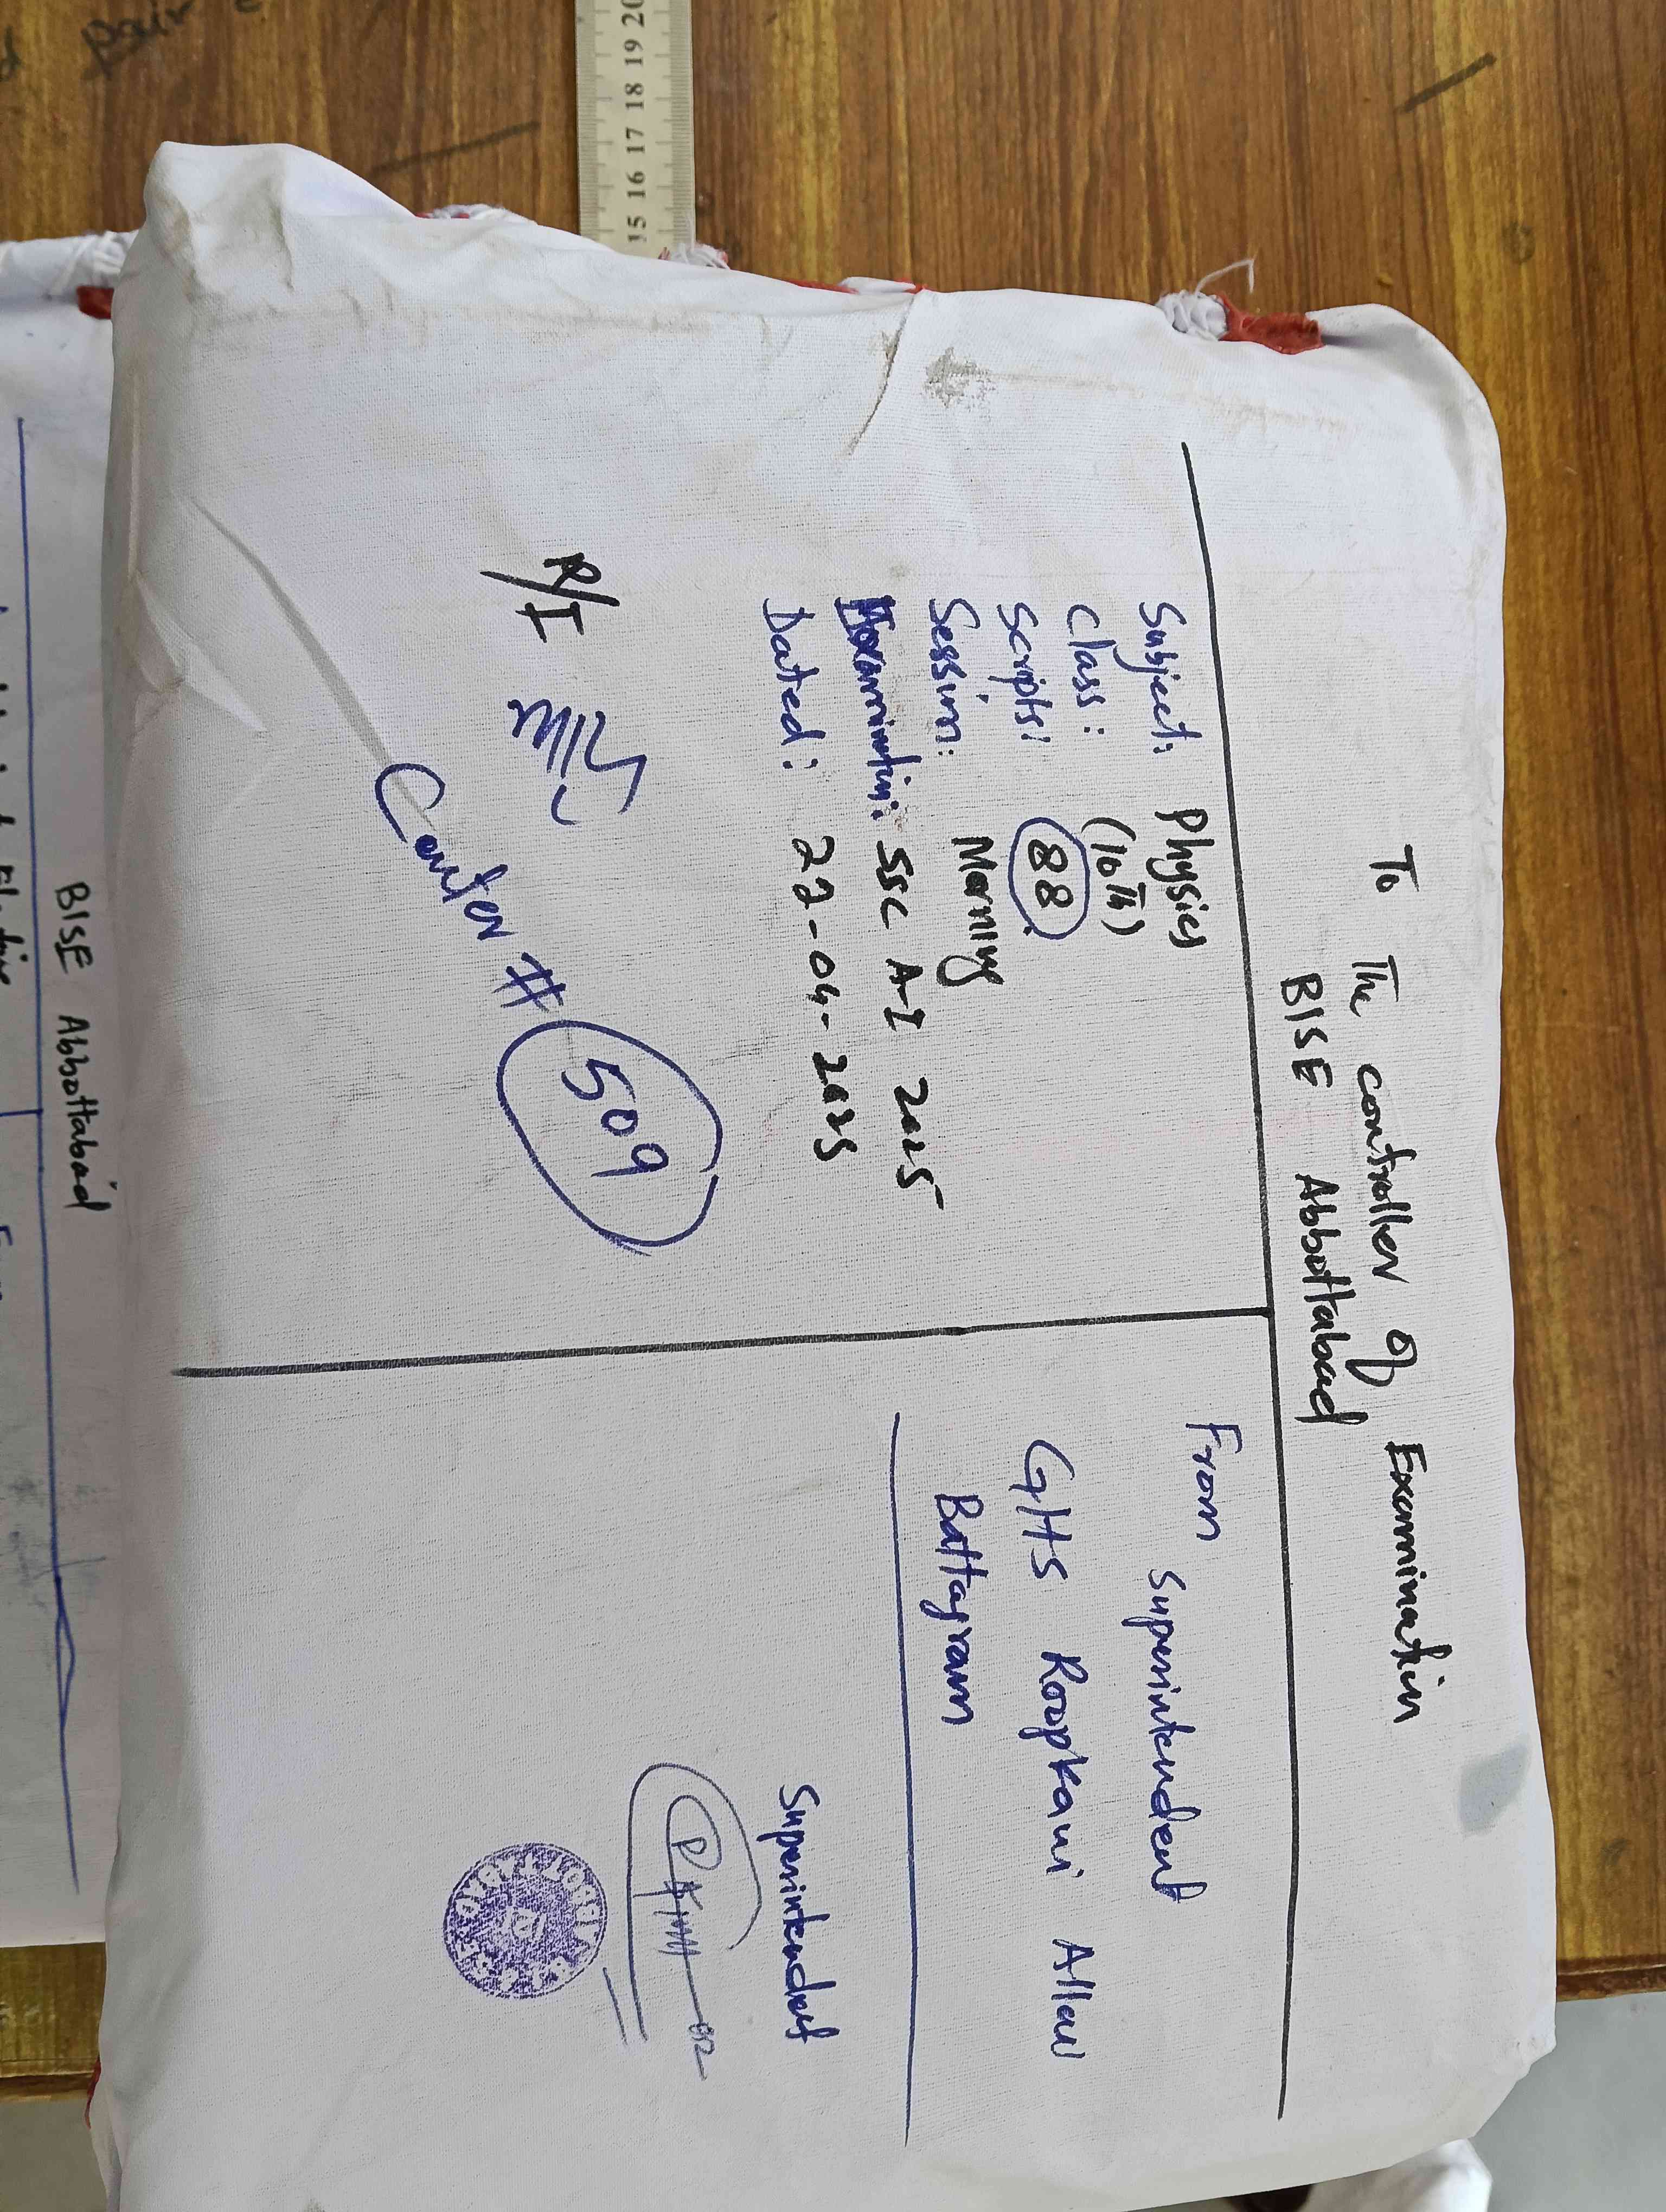 To The Controller of Examination
BISE Abbottabad
Subject: Physics
Class: (10th)
Scripts: 88
Session: Morning
Examination: SSC A-I 2025
Dated: 22-04-2025
R/I
Center # 509
From
Superintendent
GHS Roopkani Allai
Battagram
Superintendent
BISE Abbottabad
pair
15 16 17 18 19 20